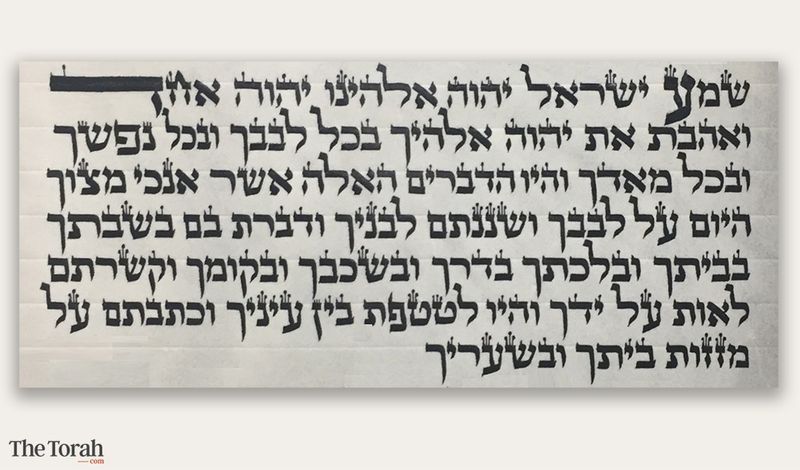 שמע ישראל יהוה אלהינו יהוה אחד
ואהבת את יהוה אלהיך בכל לבבך ובכל נפשך
ובכל מאדך והיו הדברים האלה אשר אנכי מצוך
היום על לבבך ושננתם לבניך ודברת בם בשבתך
בביתך ובלכתך בדרך ובשכבך ובקומך וקשרתם
לאות על ידך והיו לטטפת בין עיניך וכתבתם על
מזזות ביתך ובשעריך
The Torah
.com